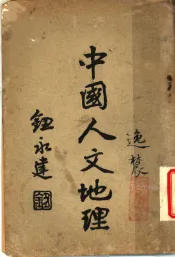 中國人文地理
鈕永建